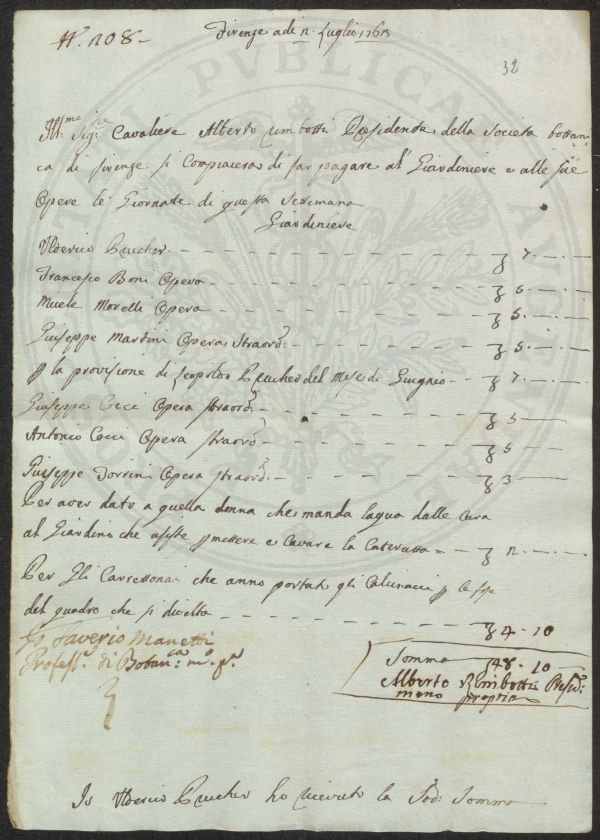 N.º 208-
Firenze adi 12. Luglio 1765
32
Ill:mo Sig:re Cavaliere Alberto Rimbotti Presidente della Societa bottani
ca di firenze si Compiacera di far pagare al Giardiniere e alle Sue
Opere le Giornate di questa Settimana
Giardiniere
Ulderico Prucher - - - 7. -
Francesco Boni Opera - - - 5. -
Miele Morelli Opera - - - 5. -
Giuseppe Martini Opera Straord:a - - - 5. -
p la provisione di Leopoldo Prucher del Mese di Giugnio - - 7. -
Giuseppe Cocci Opera straord:a - - - 5 -
Antonio Cocci Opera straord:a - - - 5 -
Giuseppe Dorrini Opera straord:a - - - 3 -
Per aver dato a quella donna che manda laqua dalle Cura
al Giardino che asiste p mettere e Cavare la Cateratta - - 2. -
Per Gli Carrettonai che anno portati gli Calcinacci p le
del quadro che si divelta - - - 4 - 10
Saverio Manetti
Profess:re di Botan:ca m:o p:a
Somma 48 - 10
Alberto Rimbotti Presid:e
mano propria
Io Ulderico Prucher ho ricevuto la Sod: Somma